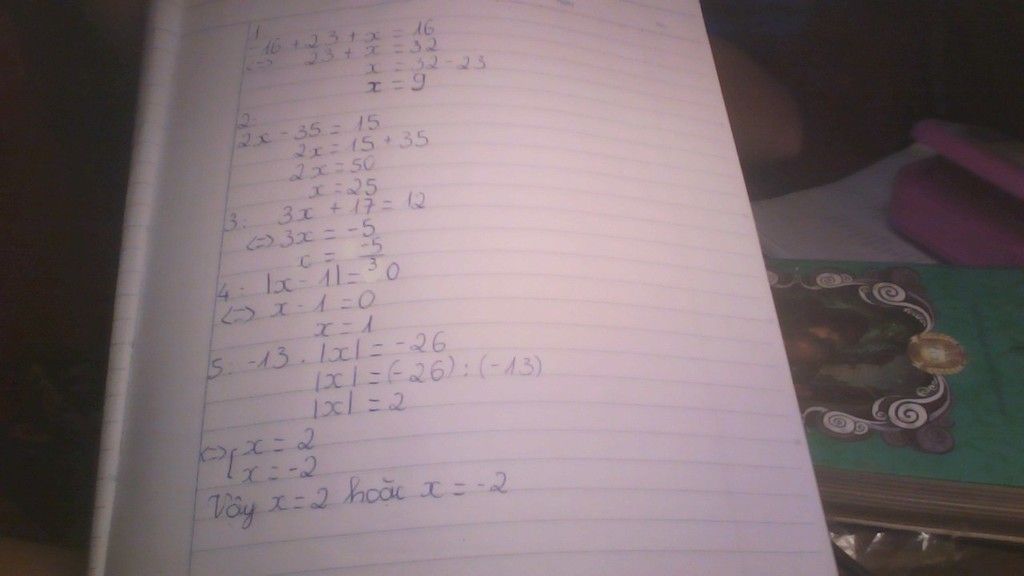 1
-16 + 23 + x = 16
<=> 23 + x = 32
x = 32 - 23
x = 9
2:
2x - 35 = 15
2x = 15 + 35
2x = 50
x = 25
3: 3x + 17 = 12
<=> 3x = -5
x = -5/3
4: |x - 1| = 0
<=> x - 1 = 0
x = 1
5: -13 . |x| = -26
|x| = (-26) : (-13)
|x| = 2
<=> [ x = 2
x = -2
Vậy x = 2 hoặc x = -2